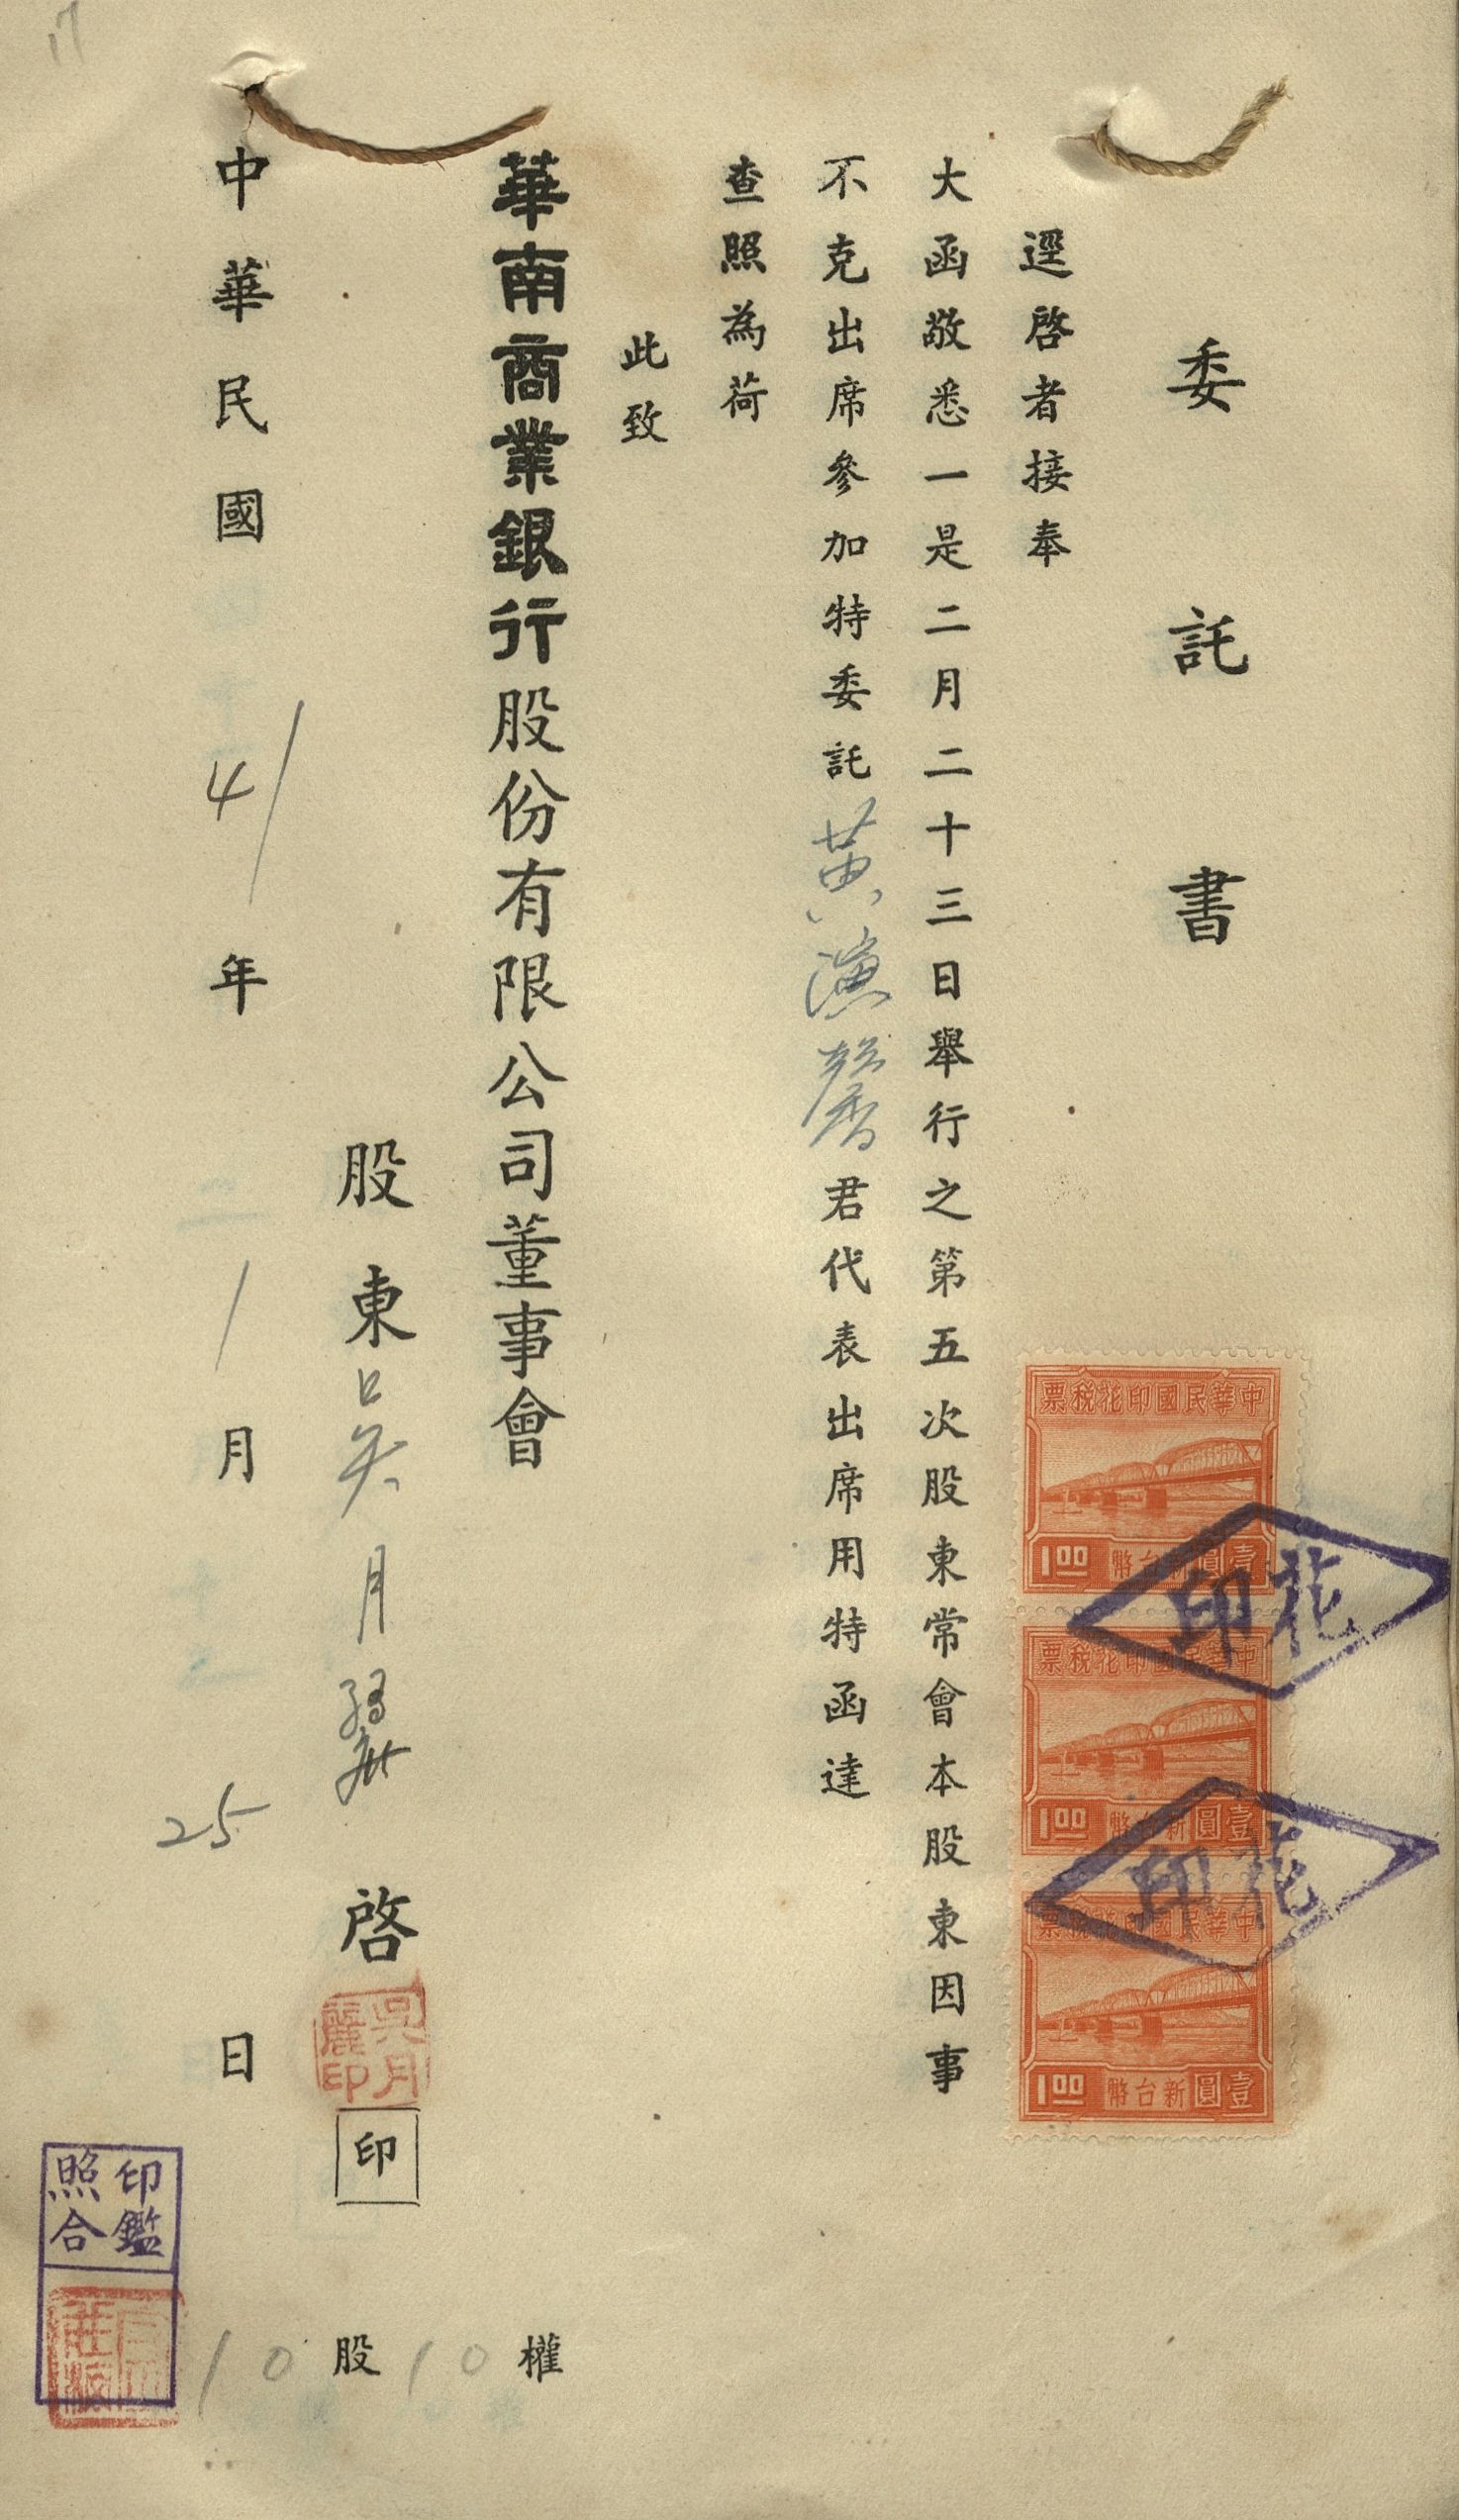 17
委託書
逕啓者接奉
大函敬悉一是二月二十三日舉行之第五次股東常會本股東因事
不克出席參加特委託黃演馨君代表出席用特函達
查照為荷
此致
華南商業銀行股份有限公司董事會
股東吳月麗啓
吳月麗印
印
10股10權
中華民國41年1月25日
中華民國印花稅票
1.00
新台幣壹圓
中華民國印花稅票
1.00
新台幣壹圓
中華民國印花稅票
1.00
新台幣壹圓
花印
花印
印鑑
照合